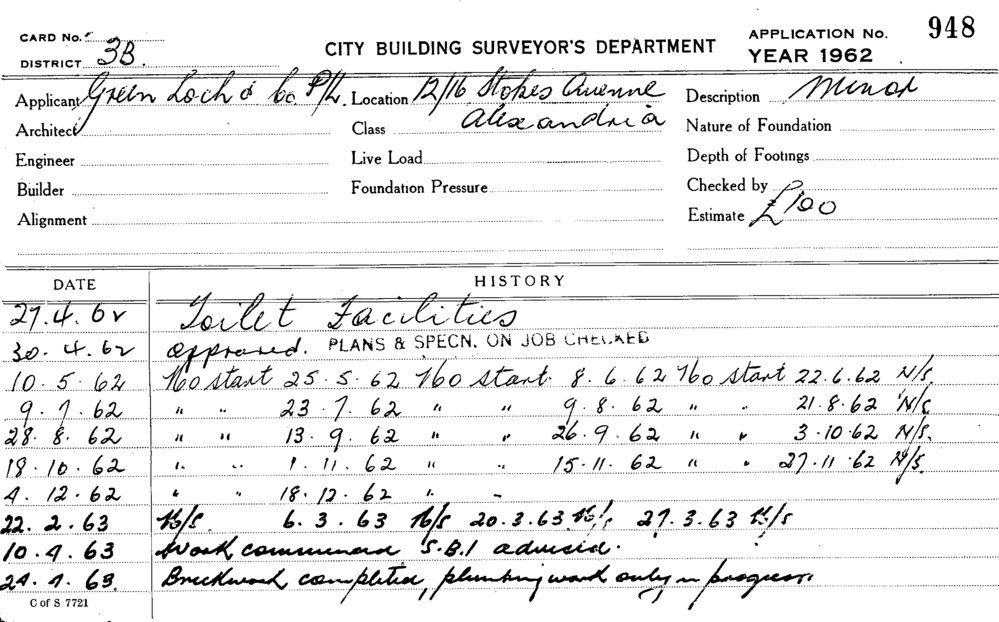 CARD No.
DISTRICT 3B.
CITY BUILDING SURVEYOR'S DEPARTMENT
APPLICATION No. 948
YEAR 1962
Applicant Green Loch & Co. P/L. Location 12/16 Stokes Avenue Description Minor
Architect Class Alexandria Nature of Foundation
Engineer Live Load Depth of Footings
Builder Foundation Pressure Checked by
Alignment Estimate £100
DATE HISTORY
27.4.62 Toilet Facilities
30.4.62 approved. PLANS & SPECN. ON JOB CHECKED
10.5.62 No start 25.5.62 No start. 8.6.62 No start 22.6.62 N/S.
9.7.62 " " 23.7.62 " " 9.8.62 " " 21.8.62 N/S
28.8.62 " " 13.9.62 " " 26.9.62 " " 3.10.62 N/S.
18.10.62 " " 1.11.62 " " 15.11.62 " " 27.11.62 N/S.
4.12.62 " " 18.12.62 " "
22.2.63 N/S. 6.3.63 N/S 20.3.63 N/S 27.3.63 N/S
10.4.63 Work commenced S.B.I advised.
24.4.63. Brickwork completed, plumbing work only in progress.
C of S 7721